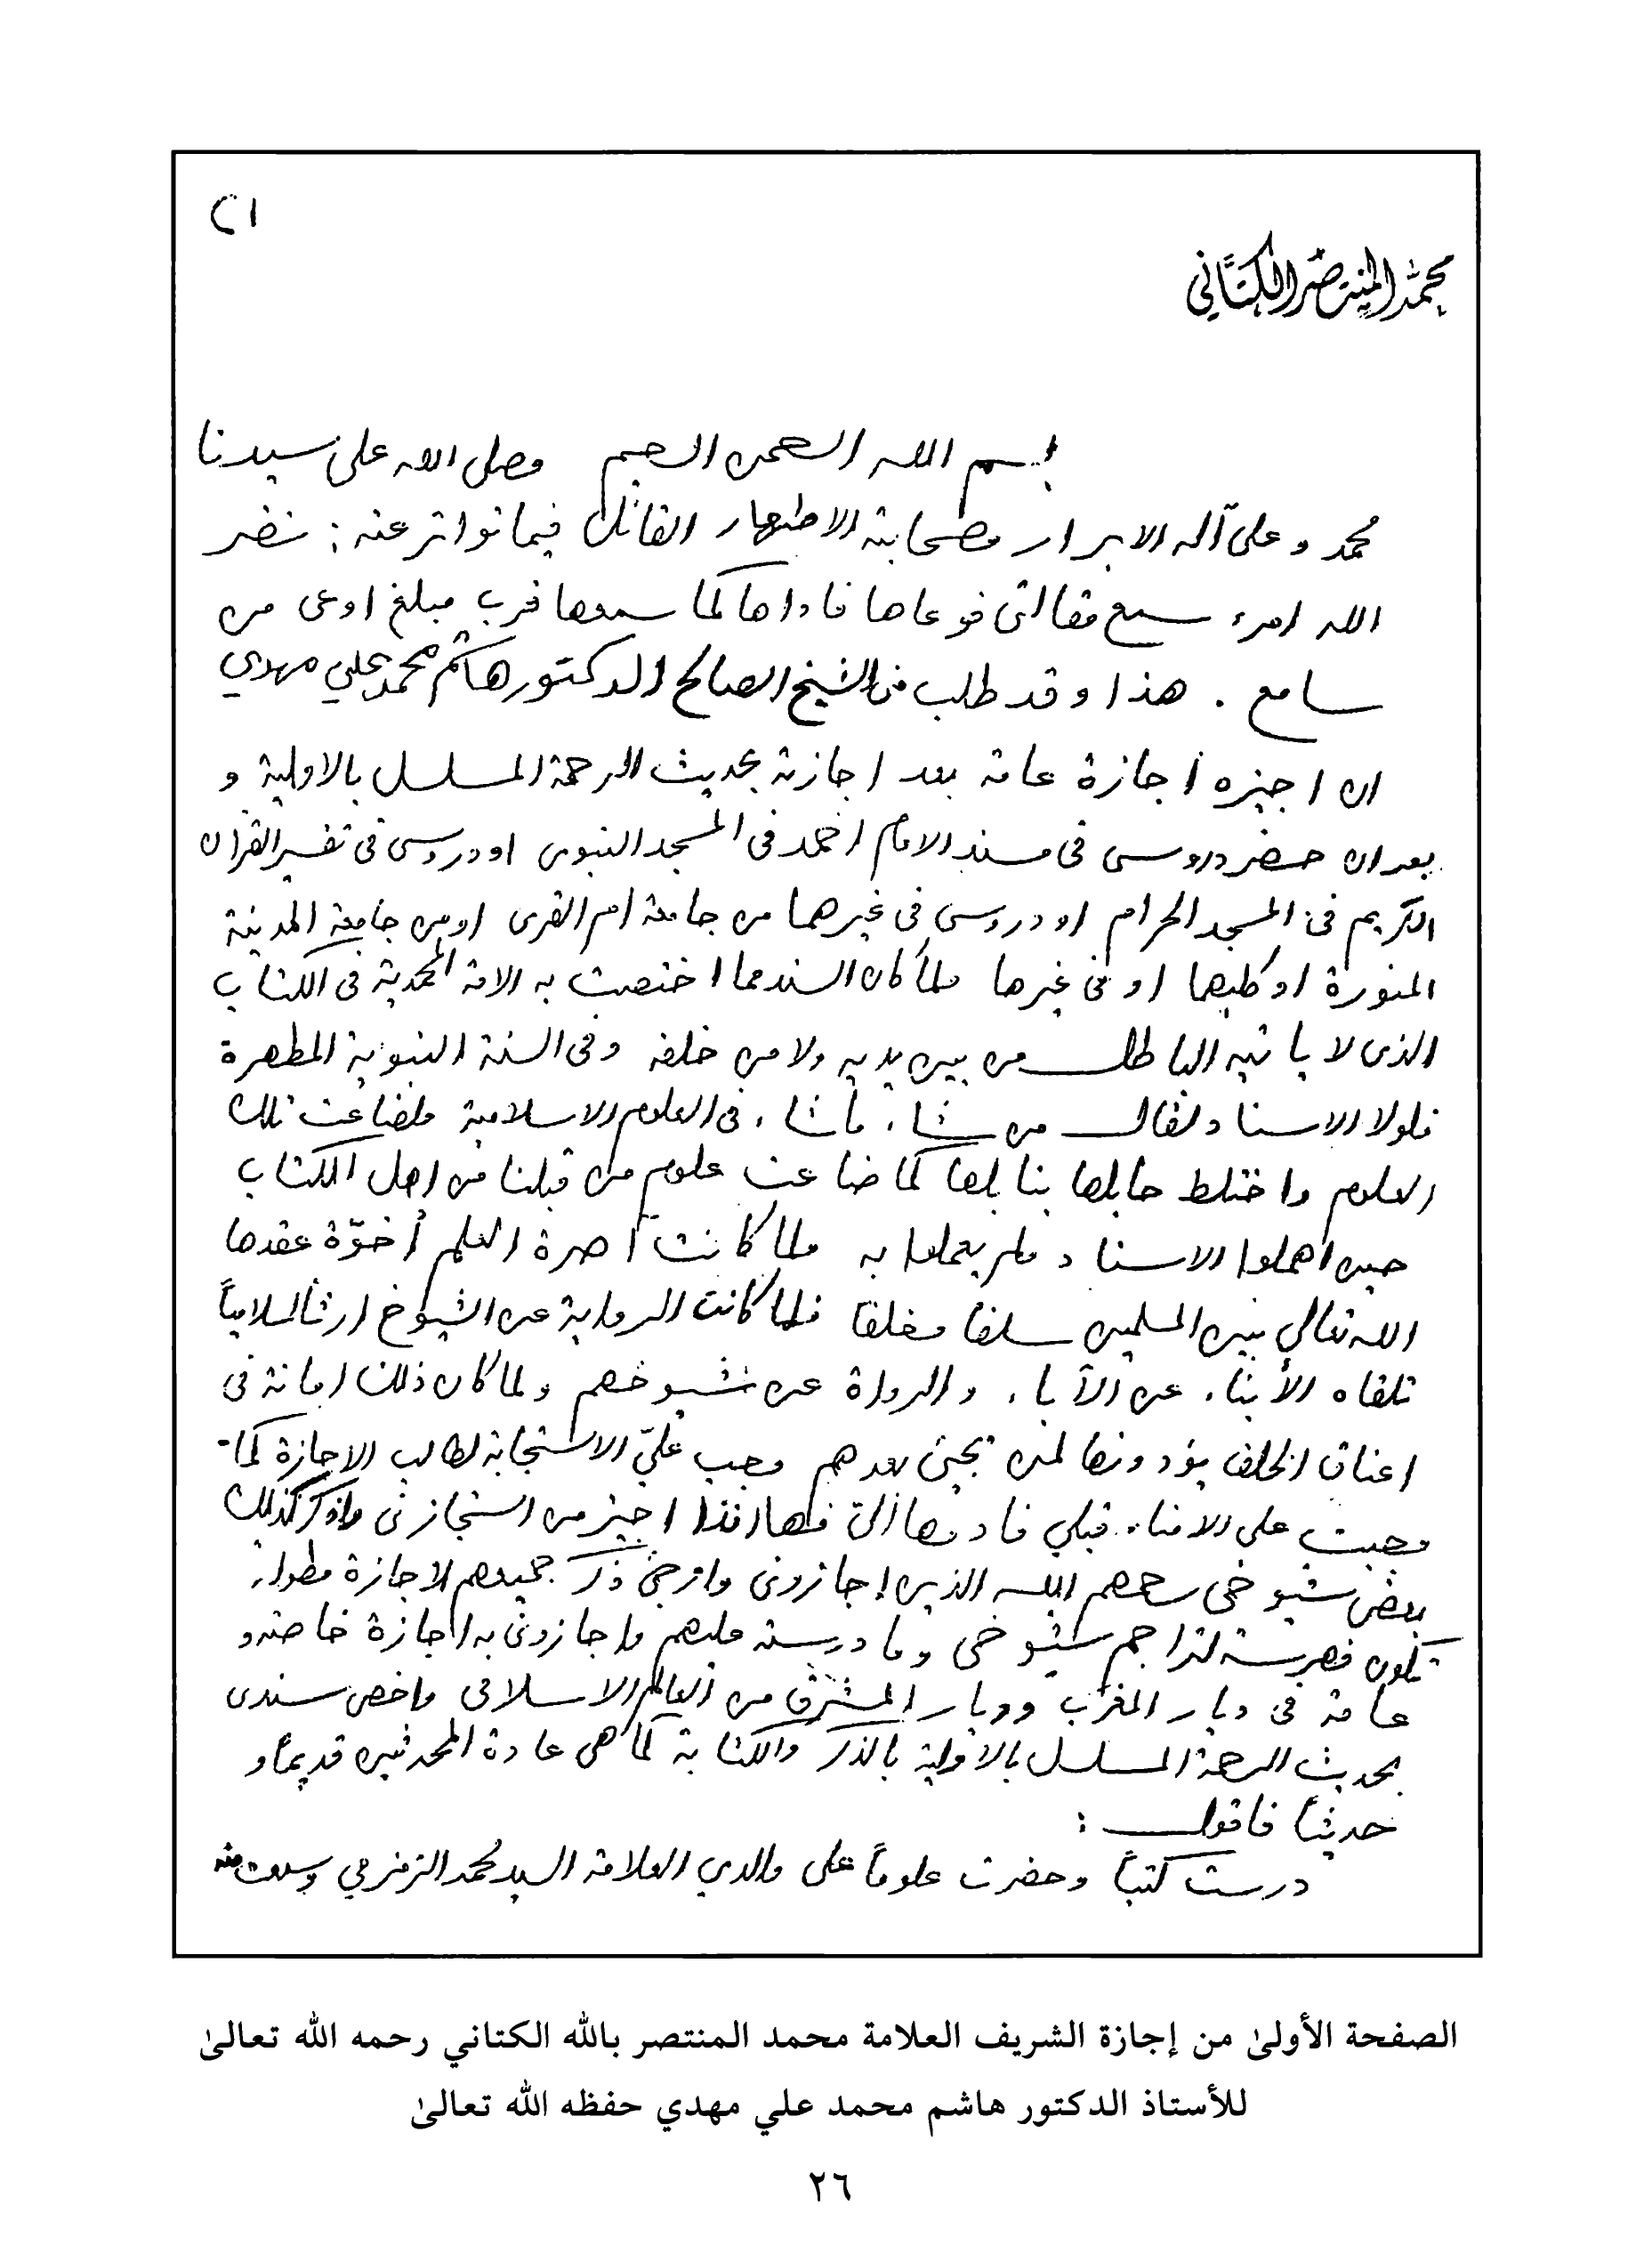 (١
محمد المنتصر الكتاني
بسم الله الرحمن الرحيم وصلى الله على سيدنا
محمد وعلى آله الابرار وصحابته الاطهار القائل فيما تواتر عنه : نضر
الله امرء سمع مقالتي فوعاها فاداها كما سمعها فرب مبلغ اوعى من
سامع . هذا وقد طلب منا الشيخ الصالح الدكتور هاشم محمد علي مهدي
ان اجيزه اجازة عامة بعد اجازته بحديث الرحمة المسلسل بالاولية و
بعد ان حضر دروسى فى مسند الامام احمد فى المسجد النبوى او دروسى فى تفسير القران
الكريم فى المسجد الحرام او دروسى فى غيرهما من جامعة ام القرى او من جامعة المدينة
المنورة او كليهما او فى غيرها ولما كان السند مما اختصت به الامة المحمدية فى الكتاب
الذى لا ياتيه الباطل من بين يديه ولا من خلفه وفى السنة النبوية المطهرة
فلولا الاسناد لقال من شاء ما شاء فى العلوم الاسلامية ولضاعت تلك
العلوم واختلط حابلها بنابلها كما ضاعت علوم من قبلنا من اهل الكتاب
حين اهملوا الاسناد ولم يعملوا به ولما كانت آصرة العلم أخوّة عقدها
الله تعالى بين المسلمين سلفا وخلفا فلما كانت الرواية عن الشيوخ ارثا سلامياً
تلقاه الأبناء عن الآباء والرواة عن شيوخهم ولما كان ذلك امانة فى
اعناق الخلف يؤدونها لمن يجئ بعدهم وجب عليّ الاستجابة لطالب الاجازة كما
وجبت على الامناء قبلي فادوها الى فها انذا اجيز من استجازنى واذكر كذلك
بعض شيوخى رحمهم الله الذين اجازونى وارجئ ذكر جميعهم لاجازة مطولة
تكون فهرسة لتراجم شيوخى وما درسته عليهم واجازونى به اجازة خاصة و
عامة فى ديار المغرب وديار المشرق من العالم الاسلامى واخص سندى
بحديث الرحمة المسلسل بالاولية بالذكر والكتابة كما هى عادة المحدثين قديماً و
حديثاً فاقول :
درست كتباً وحضرت علوماً على والدي العلامة السيد محمد الزمزمي وسمعت منه
الصفحة الأولىٰ من إجازة الشريف العلامة محمد المنتصر بالله الكتاني رحمه الله تعالىٰ
للأستاذ الدكتور هاشم محمد علي مهدي حفظه الله تعالىٰ
٢٦